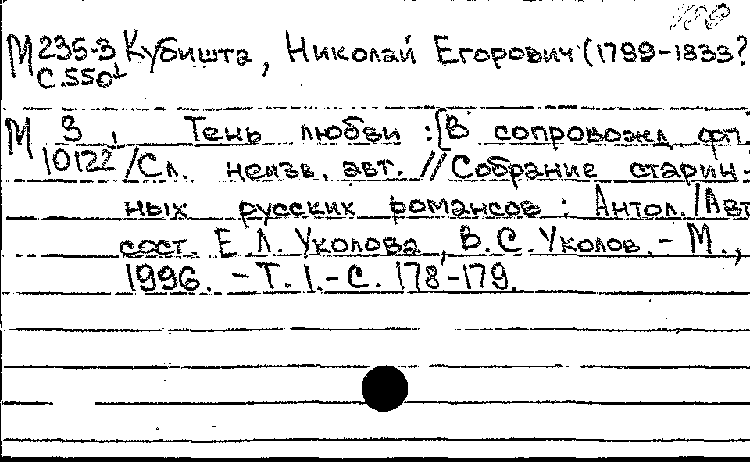 М 235-3 Кубишта, Николай Егорович (1799-1833?
С.550¹
М 3 Тень любви : [В сопровожд. фп.
10122 /Сл. неизв. авт. // Собрание старин-
ных русских романсов : Антол. / Авт
сост. Е.Л. Уколова, В.С. Уколов. - М.,
1996. - Т. 1. - С. 178-179.